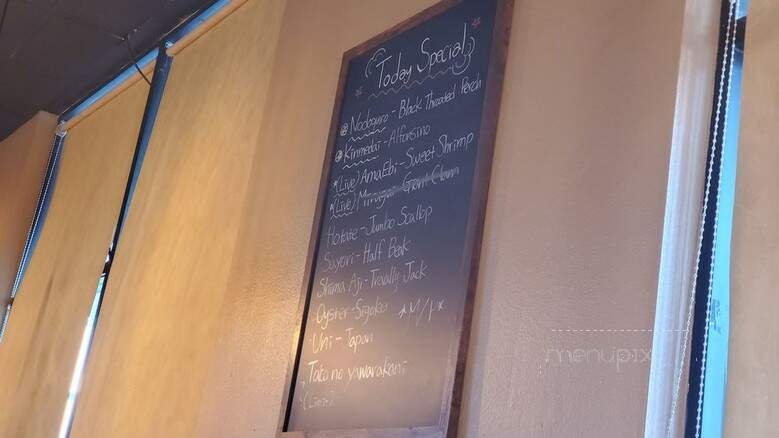 Today Special
Nodoguro - Black Throated Perch
Kinmedai - Alfonsino
*(Live) AmaEbi - Sweet Shrimp
*(Live) Mirugai - Giant Clam
Hotate - Jumbo Scallop
Sayori - Half Beak
Shima Aji - Trevally Jack
Oyster - Sigoku *M/P*
Uni - Japan
Tako no yawarakani
menupix